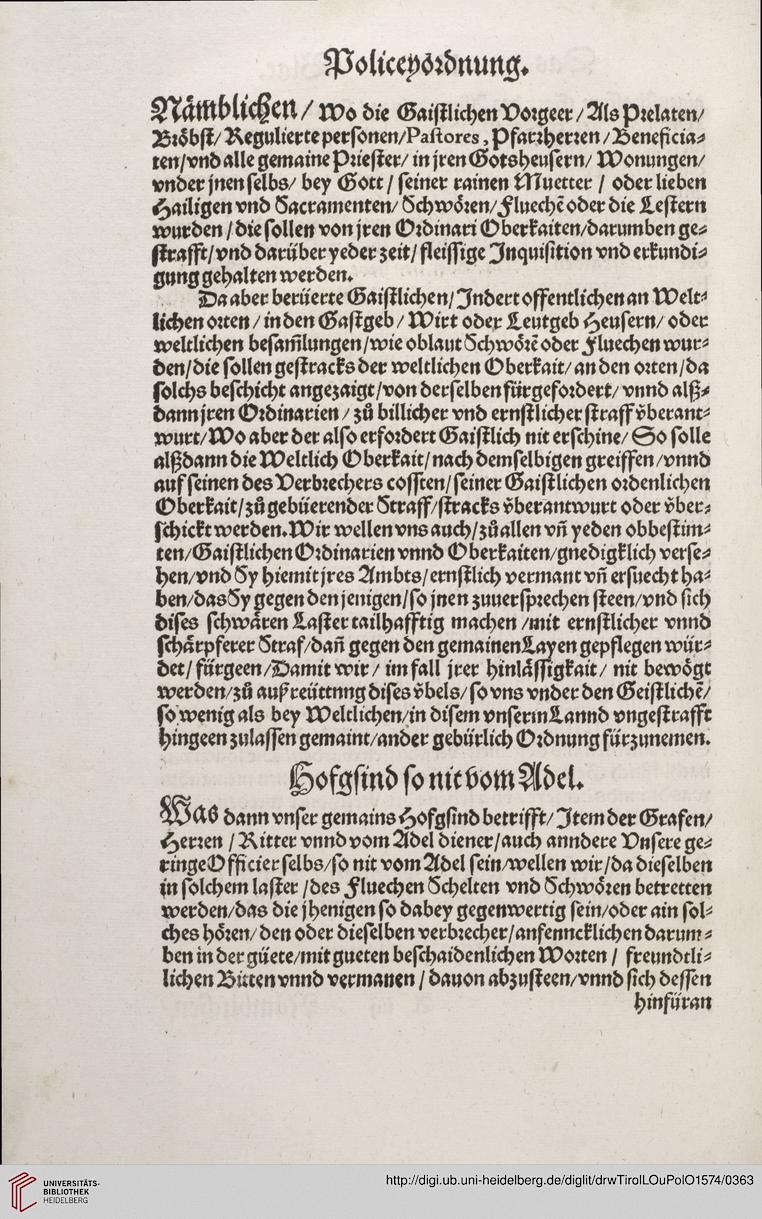 Policeyordnung.
Nämblichen / wo die Gaistlichen Vorgeer / Als Prelaten/
Bröbst/ Regulierte personen/Pastores, Pfarrherren / Beneficia⸗
ten/vnd alle gemaine Priester/ in jren Gotsheusern/ Wonungen/
vnder jnen selbs/ bey Gott / seiner rainen Muetter / oder lieben
Hailigen vnd Sacramenten/ Schwören/ Fluechē oder die Lestern
wurden / die sollen von jren Ordinari Oberkaiten/darumben ge⸗
strafft/vnd darüber yeder zeit/ fleissige Inquisition vnd erkundi⸗
gung gehalten werden.
Da aber berüerte Gaistlichen/ Indert offentlichen an Welt⸗
lichen orten / in den Gastgeb / Wirt oder Leutgeb Heusern/ oder
weltlichen besam̄lungen/wie oblaut Schwörē oder Fluechen wur⸗
den/die sollen gestracks der weltlichen Oberkait/ an den orten/da
solchs beschicht angezaigt/von derselben fürgefordert/ vnnd alß⸗
dann jren Ordinarien / zů billicher vnd ernstlicher straff v̈berant⸗
wurt/Wo aber der also erfordert Gaistlich nit erschine/ So solle
alßdann die Weltlich Oberkait/ nach demselbigen greiffen /vnnd
auf seinen des Verbrechers cossten/ seiner Gaistlichen ordenlichen
Oberkait/zů gebüerender Straff/stracks v̈berantwurt oder v̈ber⸗
schickt werden. Wir wellen vns auch/zů allen vn̄ yeden obbestim⸗
ten/Gaistlichen Ordinarien vnnd Oberkaiten/gnedigklich verse⸗
hen/vnd Sy hiemit jres Ambts/ ernstlich vermant vn̄ ersuecht ha⸗
ben/das Sy gegen den jenigen/so jnen zuuersprechen steen/vnd sich
dises schwären Laster tailhafftig machen /mit ernstlicher vnnd
schärpferer Straf/dan̄ gegen den gemainen Layen gepflegen wür⸗
det/ fürgeen/Damit wir / im fall jrer hinlässigkait/ nit bewögt
werden/zů außreüttnng dises v̈bels/ so vns vnder den Geistlichē/
so wenig als bey Weltlichen/in disem vnserm Lannd vngestrafft
hingeen zulassen gemaint/ander gebürlich Ordnung fürzunemen.
Hofgsind so nit vom Adel.
Was dann vnser gemains Hofgsind betrifft/ Item der Grafen/
Herren / Ritter vnnd vom Adel diener/auch anndere Vnsere ge⸗
ringe Officier selbs/so nit vom Adel sein/wellen wir/da dieselben
in solchem laster /des Fluechen Schelten vnd Schwören betretten
werden/das die jhenigen so dabey gegenwertig sein/oder ain sol⸗
ches hören/ den oder dieselben verbrecher/anfenncklichen darum⸗
ben in der güete/mit gueten beschaidenlichen Worten / freundtli⸗
lichen Bitten vnnd vermanen / dauon abzusteen/vnnd sich dessen
hinfüran
UNIVERSITÄTS-
BIBLIOTHEK
HEIDELBERG
http://digi.ub.uni-heidelberg.de/diglit/drwTirolLOuPolO1574/0363